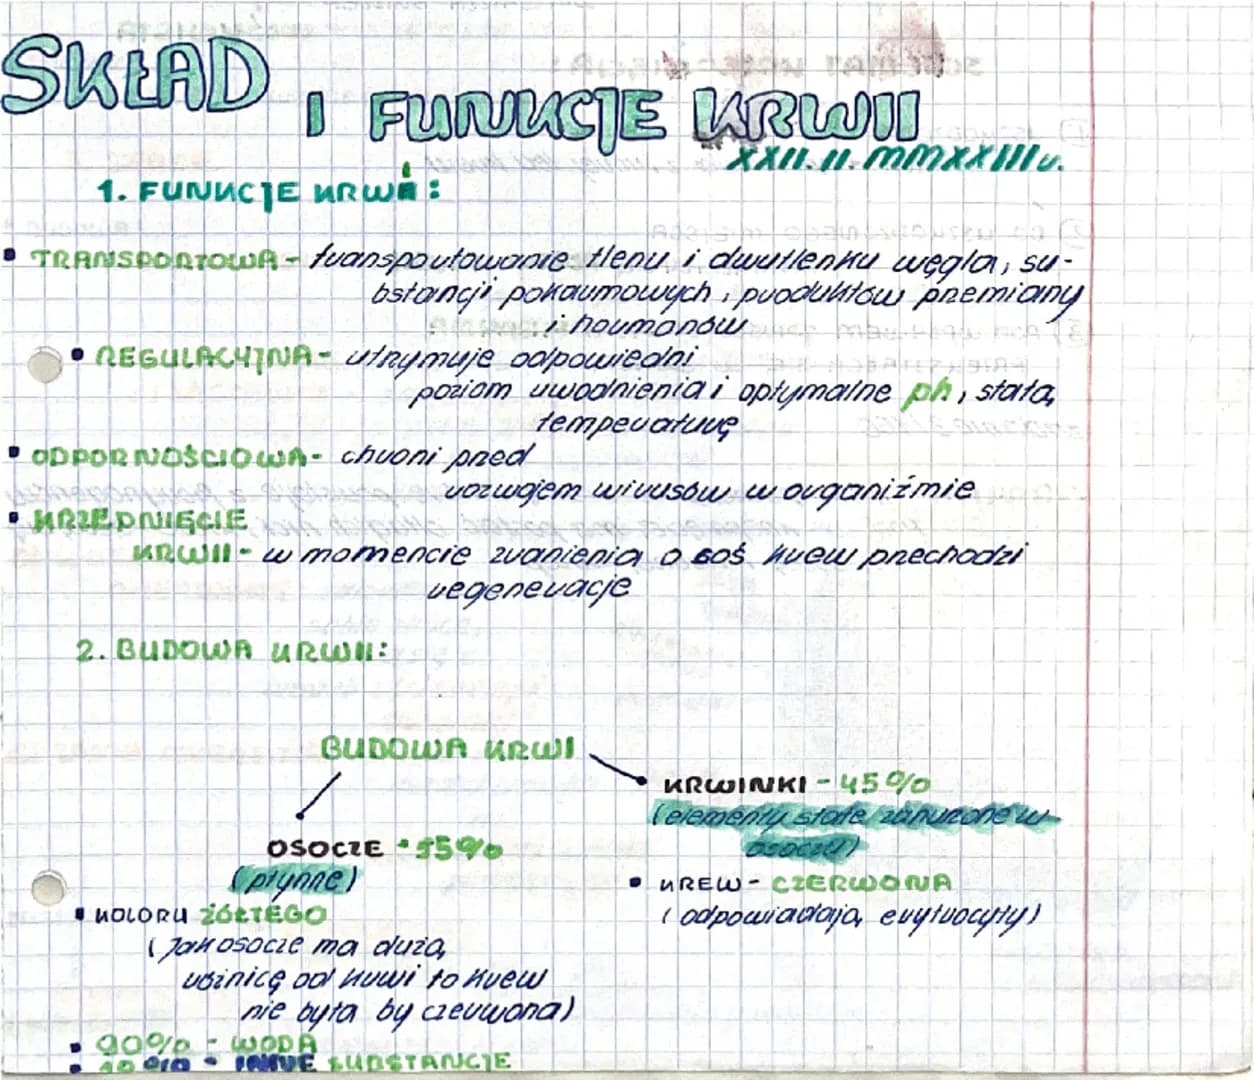 SKŁAD
I FUNKCJE KRWII
XXII.II.MMXXIIIr.
1. FUNKCJE KRWI:
• TRANSPORTOWA - transportowanie tlenu i dwutlenku węgla, su-
bstancji pokarmowych, produktów przemiany
i hormonów
• REGULACYJNA - utrzymuje odpowiedni
poziom uwodnienia i optymalne ph, stałą
temperaturę
• ODPORNOŚCIOWA - chroni przed
rozwojem wirusów w organiźmie
• KRZEPNIĘCIE
KRWII - w momencie zranienia o coś krew przechodzi
regeneracje
2. BUDOWA KRWII:
BUDOWA KRWI
KRWINKI - 45%
(elementy stałe zanurzone w
osoczu)
OSOCZE • 55%
(płynne)
• KREW - CZERWONA
(odpowiadają erytrocyty)
• KOLORU ŻÓŁTEGO
(Jak osocze ma dużą
różnicę od krwi to krew
nie była by czerwona)
• 90% - WODA
• 10% - INNE SUBSTANCJE